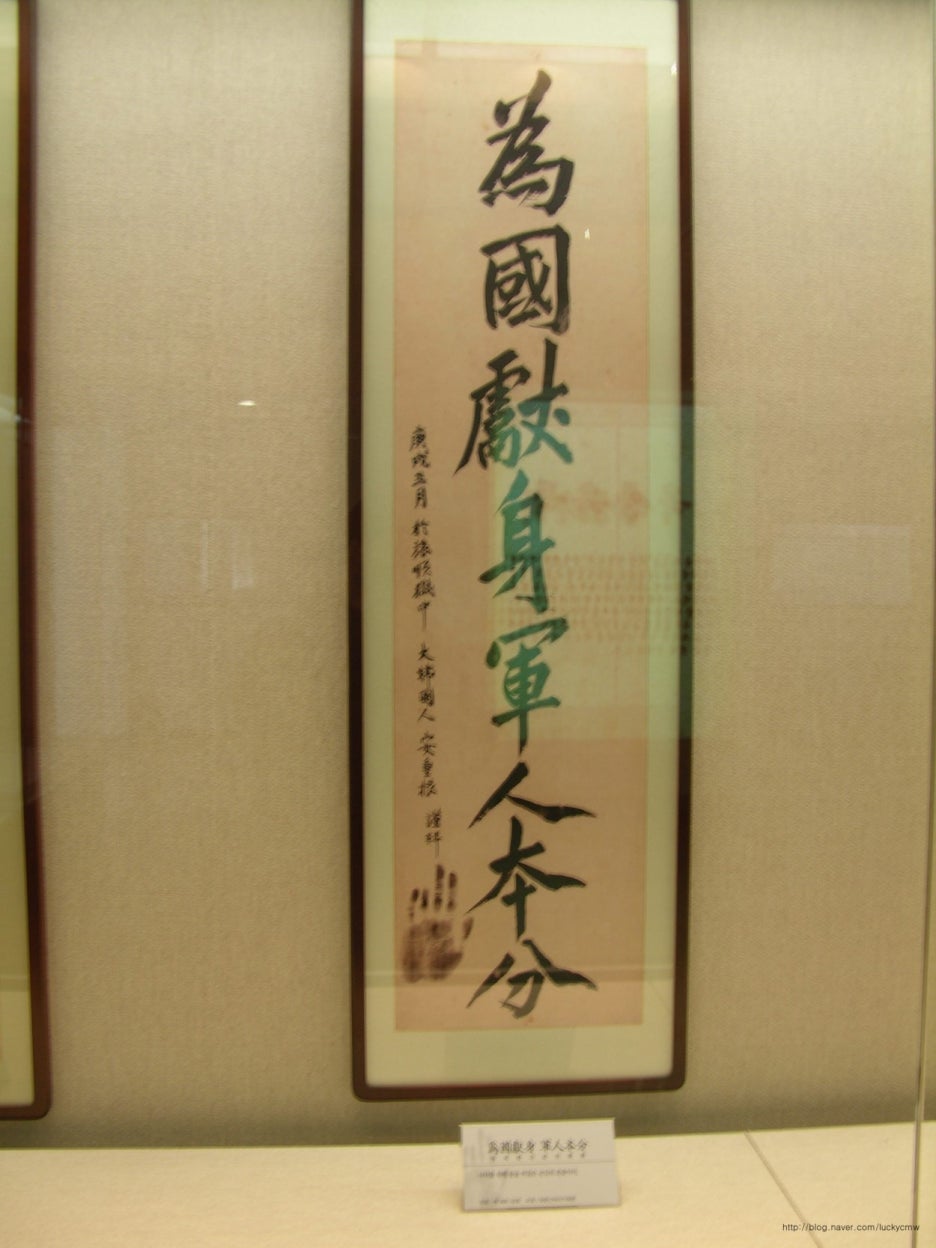 為國獻身軍人本分
庚戌三月 於旅順獄中 大韓國人 安重根 謹拜
為國獻身 軍人本分
http://blog.naver.com/luckycmw